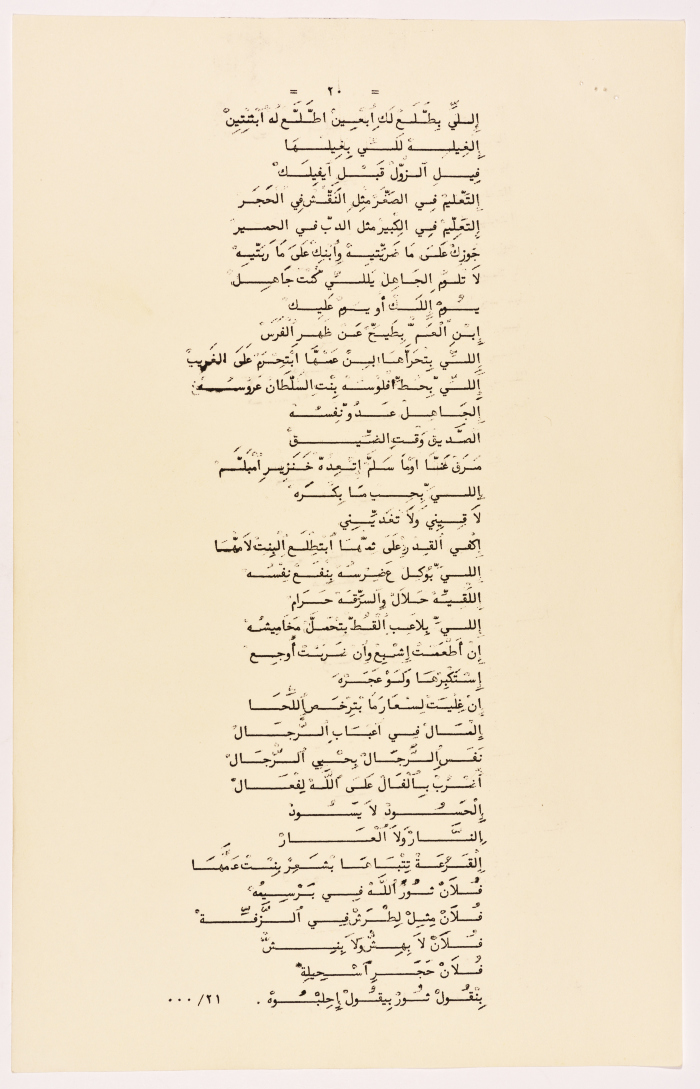 = ٢٠ =
إللّي بِطَّلَّع لَك اُبْعين اطَّلَّع لُه اَبْثِنْتِين
إلغِيلِه لَلّي بِغِيلها
قبل
التَّعْليم في الصِّغَر مِثِل النَّقْش في الحَجَر
التعْلِيم في الكبير مثل الدبّ في الحمير
جَوزِك عَلى مَا عَوَّدْتيه وأبنِك عَلى مَا رَبّتيه
لَا تلوم الجَاهِل يَللّي كُنت جَاهِل
يوم إلَك أو يوم عليك
إبْن العَمّ بِطيحّ عَن ظهر الفَرَس
إللّي بتحرأها لبن عمها ابتحرم على الغريب
إللّي بحطّ افلوسه بنت السلطان عروسه
إلجَاهِل عَدُو نَفِسُه
الصَّديق وقت الضّيق
مَرَق عَنّا اومَا سَلَّم اتعِدهّ خَنزير امْبَلَّم
إللي بحِب مَا بِكْرَه
لَا قِيني ولَا تغَدّيني
إكفي القِدرة على ثمها ابتطلع البنت لامها
إللي بوكل عَ ضِرسُه بِنفَع نَفْسُه
اللَّقيّة حَلَال والسِّرْقَة حَرَام
إللي بلاعب القُط بتحمل مخاميشه
إن أطْعَمت إشبِع وان ضَرَبت أوجِع
إستَكْبِرهَا وَلَو عَجَرَه
إن غِليت لِسعَار مَا بترخَص إللّحَا
إلمَال في اعبَاب الرّجَال
نَفَس الرّجَال بِحيي الرّجَال
أضرُب بالفَال عَلى اللّه لِفعَال
إلحَسُود لَا يَسُود
إلنَّار ولَا العَار
إلقَرعَة تِتبَاها بشعر بنت عَمّها
فُلَان ثُورَ اللّه في بَرسِيمُه
فُلَان مِثِل لِطرَش في الزَّفّة
فُلَان لَا بِهِشّ ولَا بِنِشّ
فُلَان حَجَر اسْحِيلِة
بِنْقُول ثُور بيقُول إحِلبُوه . ٢١/٠٠٠